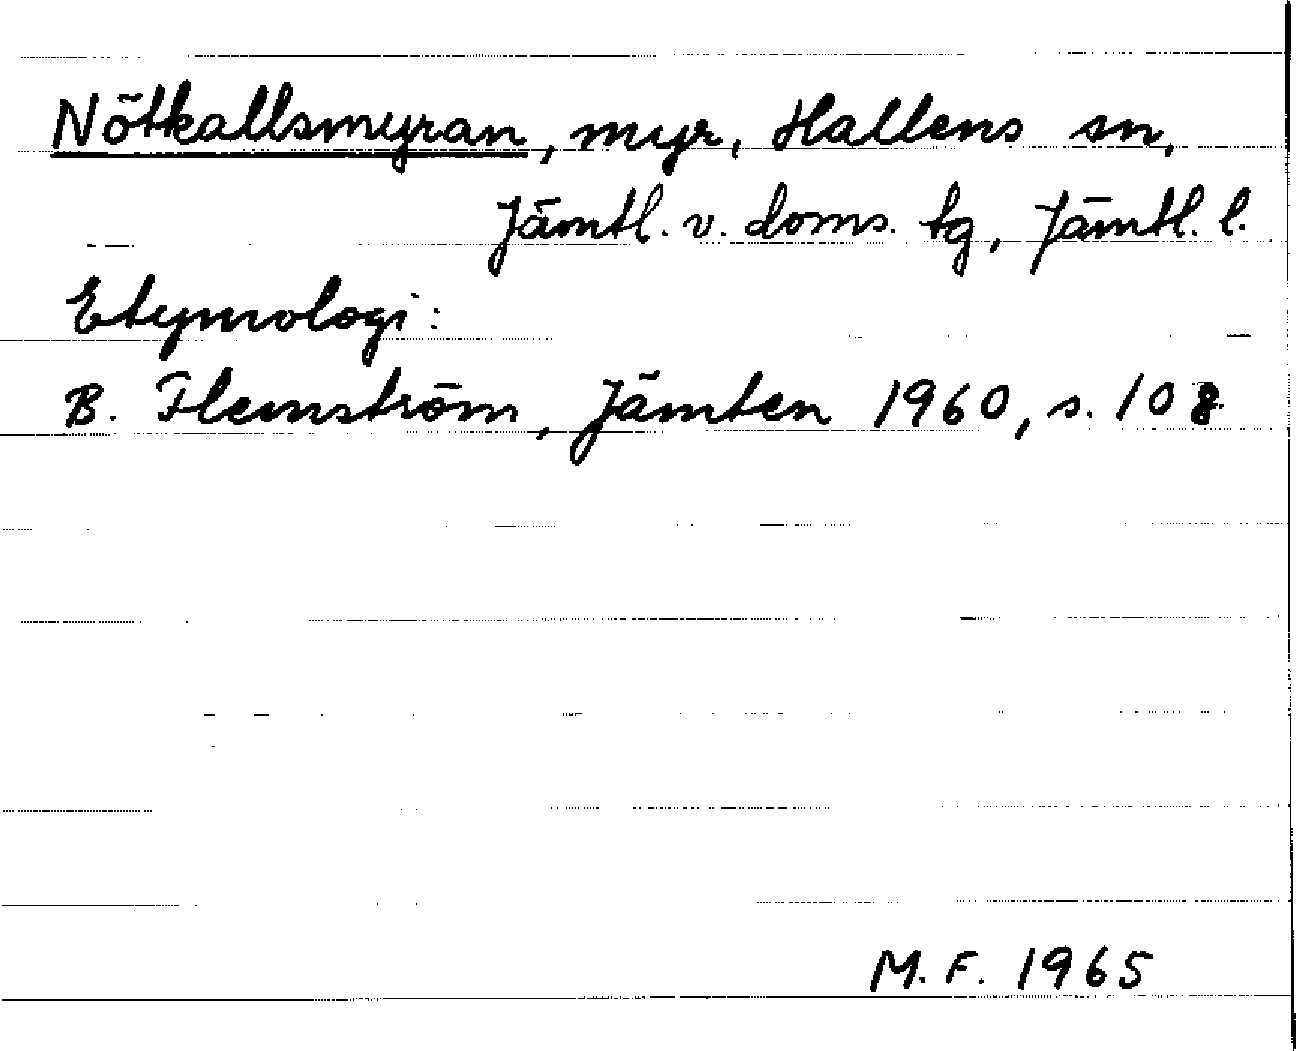 Nötkallsmyran, myr, Hallens sn,
Jämtl. v. doms. tg, Jämtl. l.
Etymologi:
B. Flemström, Jämten 1960, s. 108
M.F. 1965